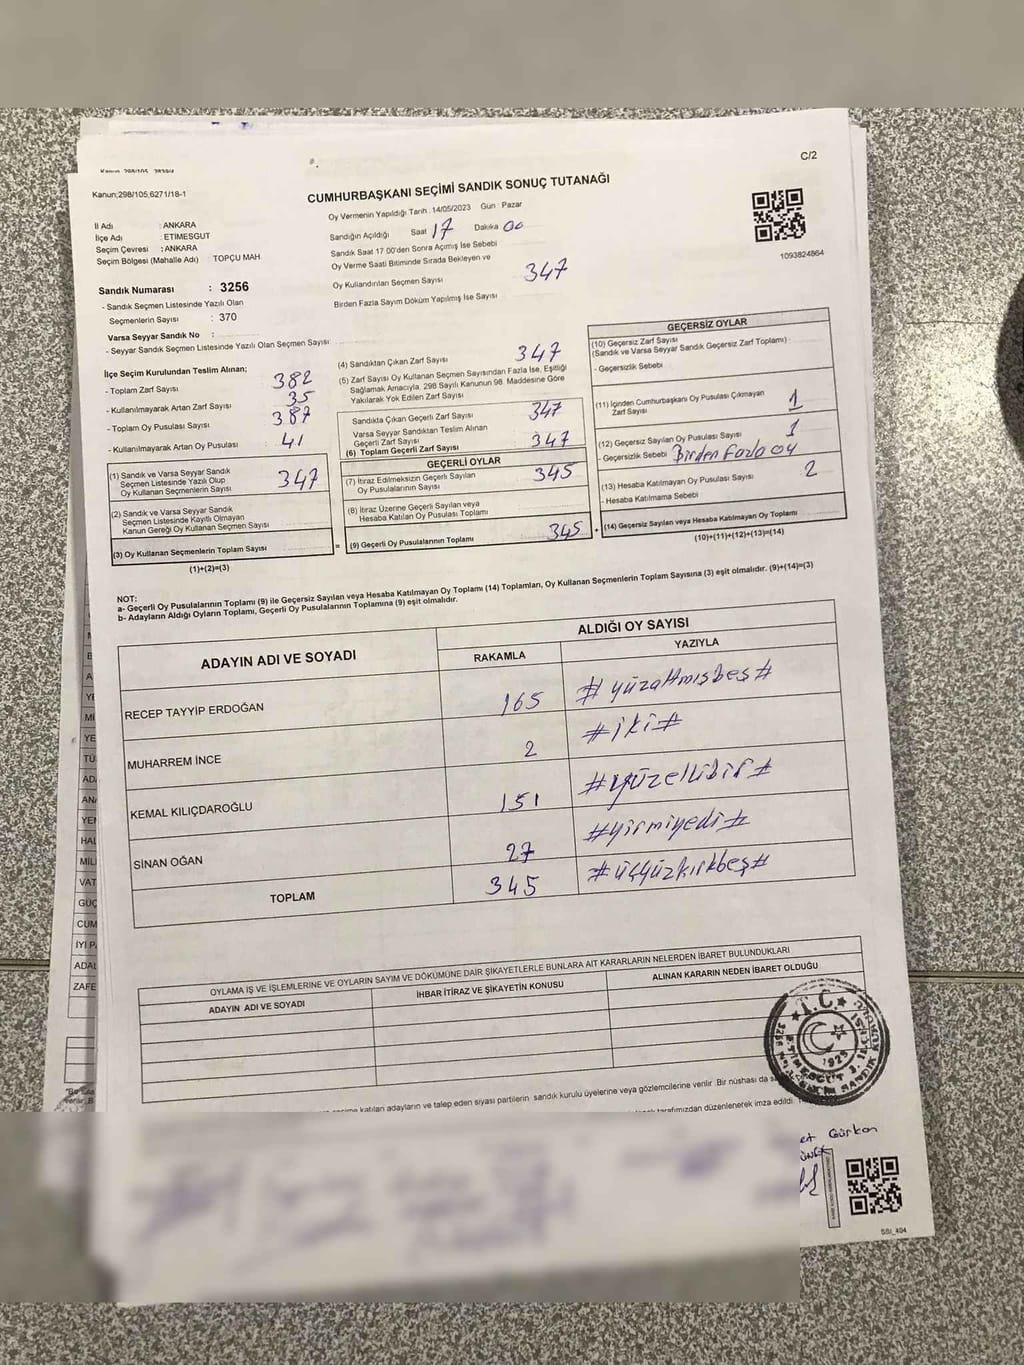 C/2
Kanun;298/105,6271/18-1
CUMHURBAŞKANI SEÇİMİ SANDIK SONUÇ TUTANAĞI
Oy Vermenin Yapıldığı Tarih : 14/05/2023 Gün : Pazar
Sandığın Açıldığı Saat 17 Dakika 00
Sandık Saat 17 00'den Sonra Açımış İse Sebebi
Oy Verme Saati Bitiminde Sırada Bekleyen ve
Oy Kullandırılan Seçmen Sayısı 347
Birden Fazla Sayım Döküm Yapılmış İse Sayısı
1093824864
İl Adı : ANKARA
İlçe Adı : ETİMESGUT
Seçim Çevresi : ANKARA
Seçim Bölgesi (Mahalle Adı) TOPÇU MAH
Sandık Numarası : 3256
- Sandık Seçmen Listesinde Yazılı Olan
Seçmenlerin Sayısı : 370
Varsa Seyyar Sandık No :
- Seyyar Sandık Seçmen Listesinde Yazılı Olan Seçmen Sayısı
İlçe Seçim Kurulundan Teslim Alınan;
- Toplam Zarf Sayısı 382
- Kullanılmayarak Artan Zarf Sayısı 35
- Toplam Oy Pusulası Sayısı 387
- Kullanılmayarak Artan Oy Pusulası : 41
(1) Sandık ve Varsa Seyyar Sandık
Seçmen Listesinde Yazılı Olup
Oy Kullanan Seçmenlerin Sayısı 347
(2) Sandık ve Varsa Seyyar Sandık
Seçmen Listesinde Kayıtlı Olmayan
Kanun Gereği Oy Kullanan Seçmen Sayısı
(3) Oy Kullanan Seçmenlerin Toplam Sayısı
(1)+(2)=(3)
(4) Sandıktan Çıkan Zarf Sayısı 347
(5) Zarf Sayısı Oy Kullanan Seçmen Sayısından Fazla İse, Eşitliği
Sağlamak Amacıyla, 298 Sayılı Kanunun 98. Maddesine Göre
Yakılarak Yok Edilen Zarf Sayısı
Sandıkta Çıkan Geçerli Zarf Sayısı 347
Varsa Seyyar Sandıktan Teslim Alınan
Geçerli Zarf Sayısı
(6) Toplam Geçerli Zarf Sayısı 347
GEÇERLİ OYLAR
(7) İtiraz Edilmeksizin Geçerli Sayılan
Oy Pusulalarının Sayısı 345
(8) İtiraz Üzerine Geçerli Sayılan veya
Hesaba Katılan Oy Pusulası Toplamı
= (9) Geçerli Oy Pusulalarının Toplamı 345
GEÇERSİZ OYLAR
(10) Geçersiz Zarf Sayısı
(Sandık ve Varsa Seyyar Sandık Geçersiz Zarf Toplamı)
- Geçersizlik Sebebi
(11) İçinden Cumhurbaşkanı Oy Pusulası Çıkmayan
Zarf Sayısı 1
(12) Geçersiz Sayılan Oy Pusulası Sayısı 1
- Geçersizlik Sebebi Birden fazla oy
(13) Hesaba Katılmayan Oy Pusulası Sayısı 2
- Hesaba Katılmama Sebebi
+ (14) Geçersiz Sayılan veya Hesaba Katılmayan Oy Toplamı
(10)+(11)+(12)+(13)=(14)
NOT:
a- Geçerli Oy Pusulalarının Toplamı (9) ile Geçersiz Sayılan veya Hesaba Katılmayan Oy Toplamı (14) Toplamları, Oy Kullanan Seçmenlerin Toplam Sayısına (3) eşit olmalıdır. (9)+(14)=(3)
b- Adayların Aldığı Oyların Toplamı, Geçerli Oy Pusulalarının Toplamına (9) eşit olmalıdır.
ADAYIN ADI VE SOYADI
ALDIĞI OY SAYISI
RAKAMLA YAZIYLA
RECEP TAYYİP ERDOĞAN 165 #yüzaltmışbeş#
MUHARREM İNCE 2 #iki#
KEMAL KILIÇDAROĞLU 151 #yüzellibir#
SİNAN OĞAN 27 #yirmiyedi#
TOPLAM 345 #üçyüzkırkbeş#
OYLAMA İŞ VE İŞLEMLERİNE VE OYLARIN SAYIM VE DÖKÜMÜNE DAİR ŞİKAYETLERLE BUNLARA AİT KARARLARIN NELERDEN İBARET BULUNDUKLARI
ADAYIN ADI VE SOYADI
İHBAR İTİRAZ VE ŞİKAYETİN KONUSU
ALINAN KARARIN NEDEN İBARET OLDUĞU
T.C.
1923
katılan adayların ve talep eden siyasi partilerin sandık kurulu üyelerine veya gözlemcilerine verilir .Bir nüshası da
tarafımızdan düzenlenerek imza edildi.
et Gürkan
SSI_404